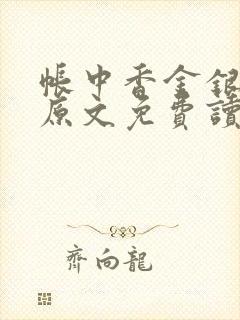 帳中香金銀
原文免費讀
齊向龍